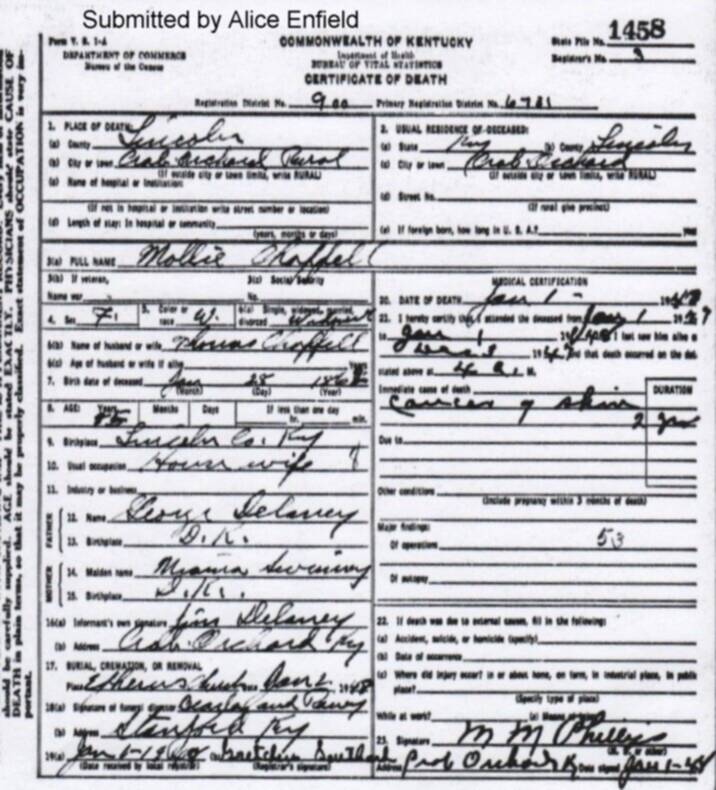 Submitted by Alice Enfield
Form V. S. 1-A
DEPARTMENT OF COMMERCE
Bureau of the Census
COMMONWEALTH OF KENTUCKY
Department of Health
BUREAU OF VITAL STATISTICS
CERTIFICATE OF DEATH
State File No. 1458
Registrar's No. 3
Registration District No. 900 Primary Registration District No. 6781
1. PLACE OF DEATH
(a) County Lincoln
(b) City or town Crab Orchard Rural
(If outside city or town limits, write RURAL)
(c) Name of hospital or institution:
(If not in hospital or institution write street number or location)
(d) Length of stay: In hospital or community
(years, months or days)
2. USUAL RESIDENCE OF DECEASED:
(a) State Ky (b) County Lincoln
(c) City or town Crab Orchard
(If outside city or town limits, write RURAL)
(d) Street No.
(If rural give precinct)
(e) If foreign born, how long in U. S. A.? years
3(a) FULL NAME Mollie Chappell
3(b) If veteran, 3(c) Social Security
Name war No.
4. Sex F 5. Color or race W. 6(a) Single, widowed, married, divorced
6(b) Name of husband or wife Thomas Chappell
6(c) Age of husband or wife if alive
7. Birth date of deceased Jan 28
(Month) (Day) (Year)
8. AGE: Years Months Days If less than one day
hr. min.
9. Birthplace Lincoln Co. Ky
10. Usual occupation House wife
11. Industry or business
FATHER
12. Name George Delaney
13. Birthplace D.K.
MOTHER
14. Maiden name
15. Birthplace D.K.
16(a) Informant's own signature Jim Delaney
(b) Address Crab Orchard Ky
17. BURIAL, CREMATION, OR REMOVAL
Place Date Jan 2 1948
18(a) Signature of funeral director
(b) Address Stanford Ky
19(a) Jan 1-1948 (b)
(Date received by local registrar) (Registrar's signature)
MEDICAL CERTIFICATION
20. DATE OF DEATH Jan 1 - 1948
21. I hereby certify that I attended the deceased from
to Jan 1 1948 I last saw him alive on
1947 and that death occurred on the date
stated above at 4 a. M.
Immediate cause of death DURATION
cancer of skin
2 yrs
Due to
Other conditions
(Include pregnancy within 3 months of death)
Major findings:
Of operations 53
Of autopsy
22. If death was due to external causes, fill in the following:
(a) Accident, suicide, or homicide (specify)
(b) Date of occurrence
(c) Where did injury occur? in or about home, on farm, in industrial place, in public
place?
(Specify type of place)
While at work? (e) Means of injury
23. Signature M M Phillips
(M. D. or other)
Address Crab Orchard K Date signed Jan 1-48
should be carefully supplied. AGE should be stated EXACTLY. PHYSICIANS should state CAUSE OF
DEATH in plain terms, so that it may be properly classified. Exact statement of OCCUPATION is very im-
portant.